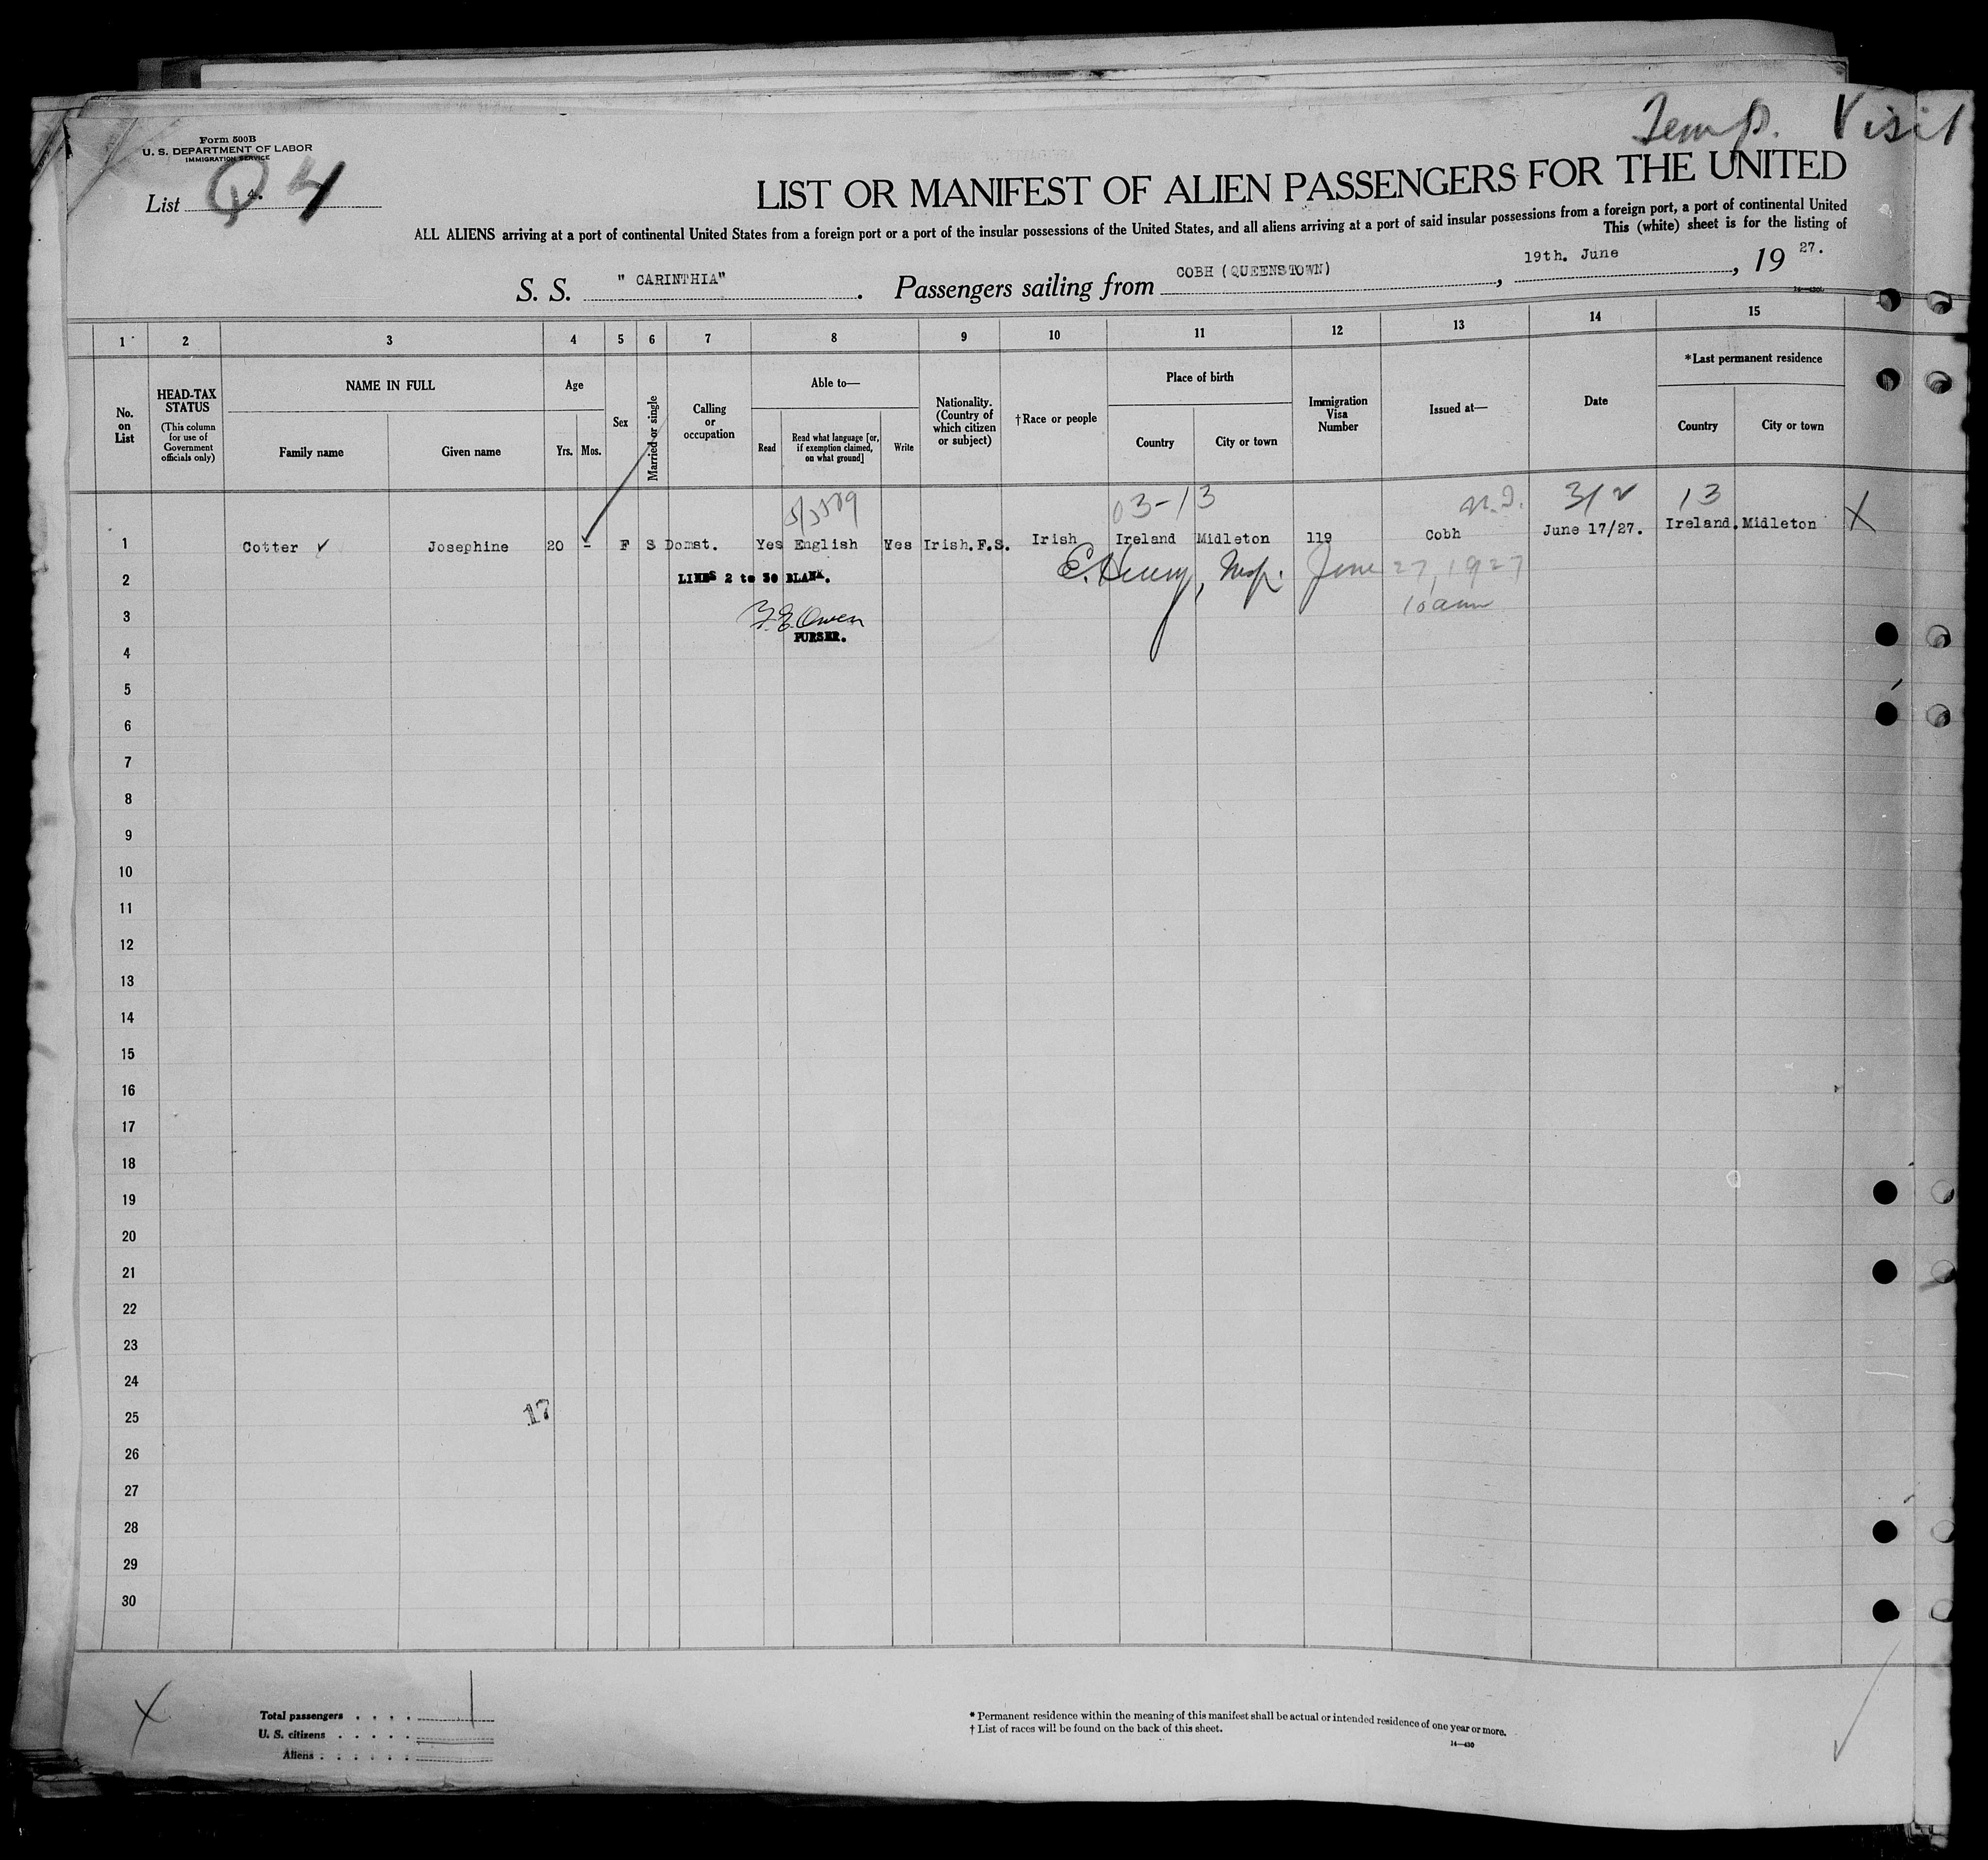 Temp. Visit
Form 500B
U. S. DEPARTMENT OF LABOR
IMMIGRATION SERVICE
List 4.
Q 4
LIST OR MANIFEST OF ALIEN PASSENGERS FOR THE UNITED
ALL ALIENS arriving at a port of continental United States from a foreign port or a port of the insular possessions of the United States, and all aliens arriving at a port of said insular possessions from a foreign port, a port of continental United
This (white) sheet is for the listing of
S. S. " CARINTHIA" . Passengers sailing from COBH (QUEENSTOWN) , 19th. June , 19 27.
1 2 3 4 5 6 7 8 9 10 11 12 13 14 15
No. on List
HEAD-TAX STATUS
(This column for use of Government officials only)
NAME IN FULL
Family name
Given name
Age
Yrs. Mos.
Sex
Married or single
Calling or occupation
Able to—
Read
Read what language [or, if exemption claimed, on what ground]
Write
Nationality. (Country of which citizen or subject)
†Race or people
Place of birth
Country
City or town
Immigration Visa Number
Issued at—
Date
*Last permanent residence
Country
City or town
03-13 312 13
1 Cotter Josephine 20 - F S Domst. Yes English Yes Irish.F.S. Irish Ireland Midleton 119 Cobh June 17/27. Ireland. Midleton X
2 LINES 2 to 30 BLANK. E. Henry, Insp. June 27, 1927
3 10 am
Owen
PURSER.
4
5
6
7
8
9
10
11
12
13
14
15
16
17
18
19
20
21
22
23
24
25
17
26
27
28
29
30
X
Total passengers . . . . 1
U. S. citizens . . . . .
Aliens . . . . . .
* Permanent residence within the meaning of this manifest shall be actual or intended residence of one year or more.
† List of races will be found on the back of this sheet.
14—430